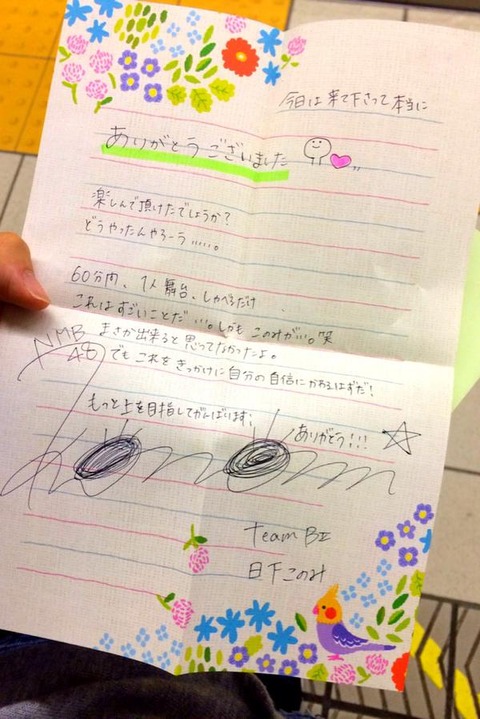 今日は来て下さって本当に
ありがとうございました
楽しんで頂けたでしょうか?
どうやったんやろーう……。
60分間、1人舞台、しゃべるだけ
これはすごいことだ…。しかも このみが…。笑
まさか出来ると思ってなかったよ。
でも これをきっかけに自分の自信にかわるはずだ!
もっと上を目指してがんばります!
ありがとう!!!
NMB
48
Team BⅡ
日下このみ